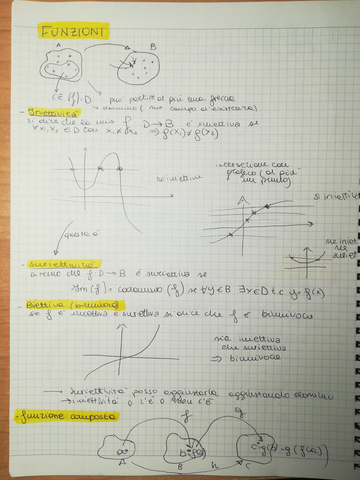 FUNZIONI
A B
C.E (f) = D può partire al più una freccia
dominio (suo campo di esistenza)
- Iniettività
si dice che una f D → B è iniettiva se
∀ x₁, x₂ ∈ D con x₁ ≠ x₂ ⇒ f(x₁) ≠ f(x₂)
intersezione con
grafico (al più
un punto)
no iniettiva
si iniettiva
questo è
- Suriettività
si dice che f D → B è suriettiva se
Im(f) = codominio (f) se ∀ y ∈ B ∃ x ∈ D t c y = f(x)
- Biettiva (biunivoca)
se f è iniettiva e suriettiva si dice che f è biunivoca
sia iniettiva
che suriettiva
⇒ biunivoca
→ suriettività posso aggiustarla aggiustando
→ iniettività o c'è o non c'è
- funzione composta
f g
A B h C